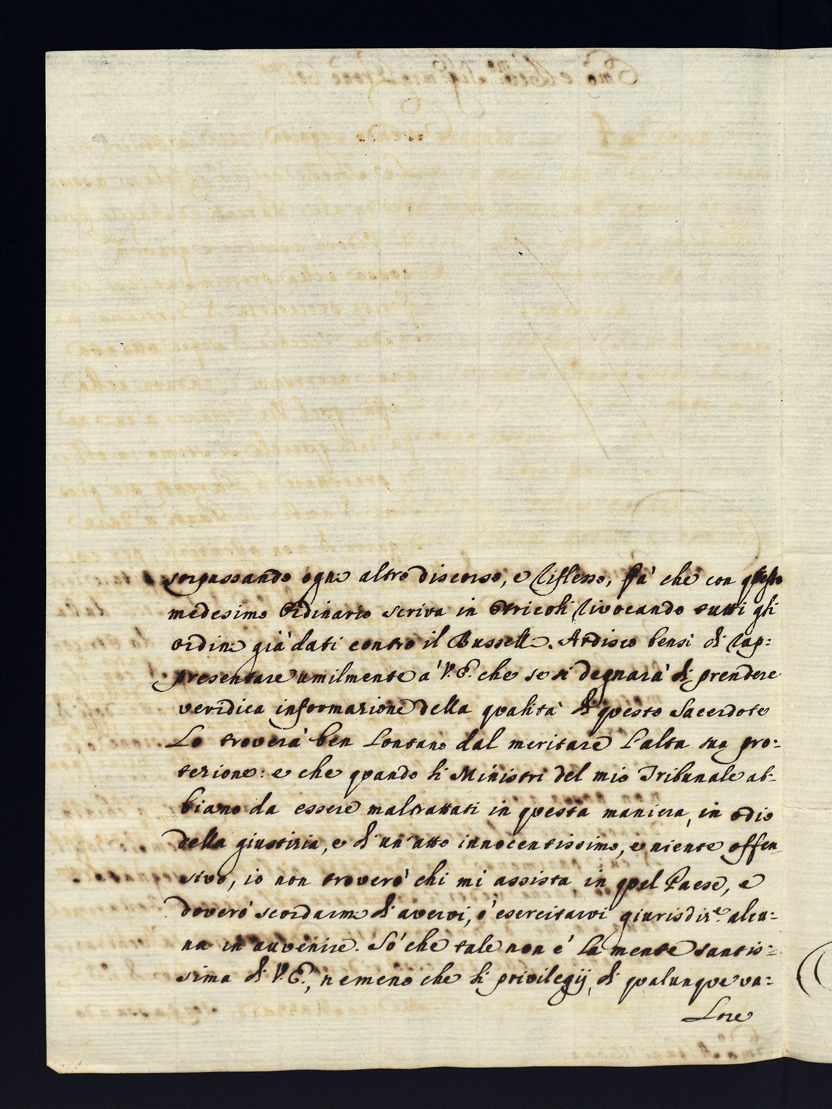 sorpassando ogni altro discorso, e riflesso, fà che con questo
medesimo Ordinario scriva in Otricoli rivocando tutti gli
ordini già dati contro il Busselli. Ardisco bensì di rap:
presentare umilmente a' V. E. che se si degnarà di prendere
veridica informazione della qualità di questo Sacerdote
Lo troverà ben lontano dal meritare l'alta sua pro:
tezione: e che quando li Ministri del mio Tribunale ab:
biano da essere maltrattati in questa maniera, in odio
della giustizia, e d'un'atto innocentissimo, e niente offen
sivo, io non troverò chi mi assista in quel Paese, e
doverò scordarmi d'avervi, ò esercitarvi giurisdiz.e alcu:
na in avvenire. Sò che tale non è la mente santis:
sima di V. E., nemeno che li privilegij, di qualunque va:
lore